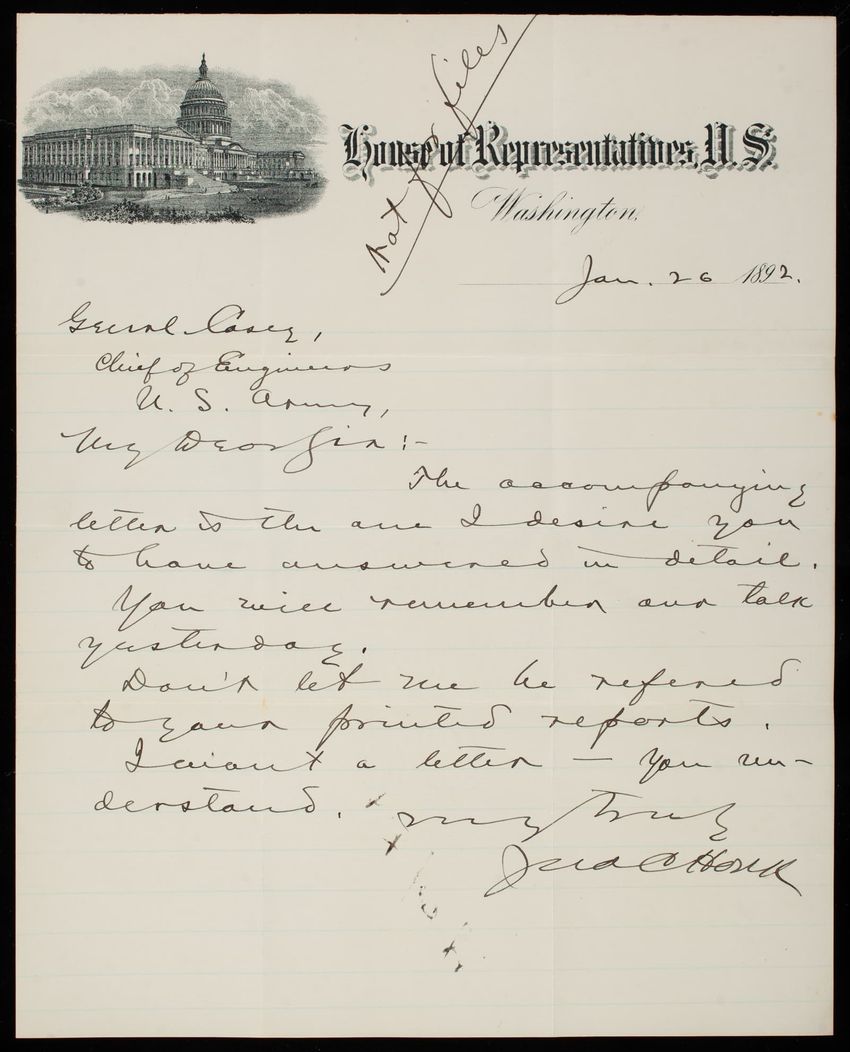 Not for files
House of Representatives, U. S.
Washington,
Jan. 26 1892.
General Casey,
Chief of Engineers
U. S. Army,
My Dear Sir :-
The accompanying
letter is the one I desire you
to have answered in detail.
You will remember our talk
yesterday.
Don't let me be refered
to your printed reports.
I want a letter — you un-
derstand.
Very Truly
Jno C Houk